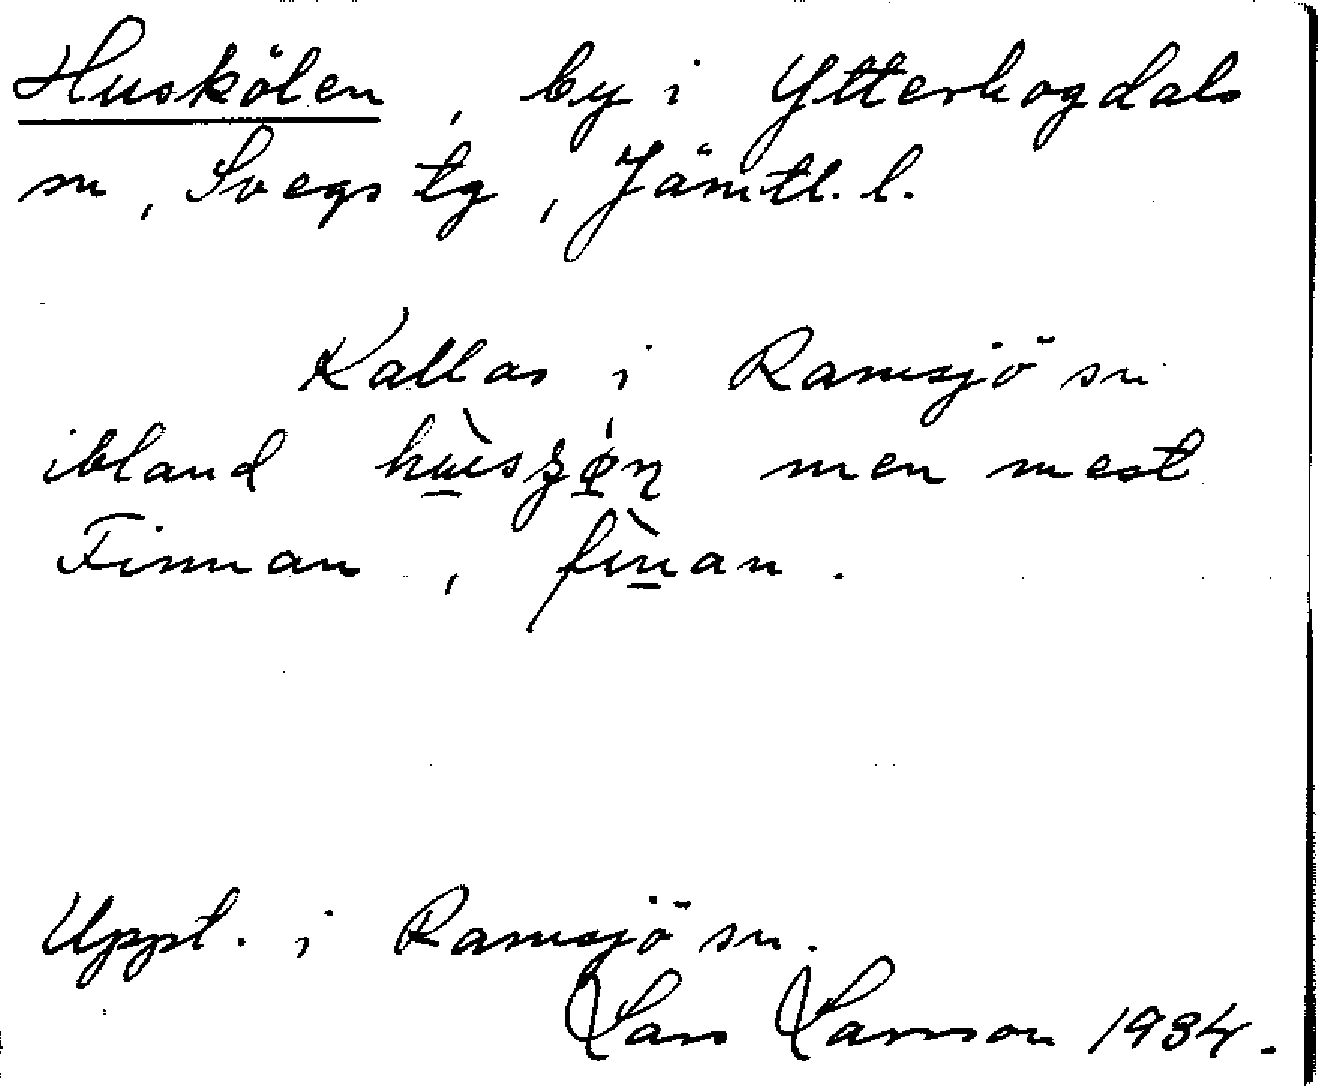 Huskölen, by i Ytterhogdals
sn, Svegs tg, Jämtl. l.
Kallas i Ramsjö sn
ibland men mest
Finnan, fìnan.
Uppt. i Ramsjö sn.
Lars Larsson 1934.